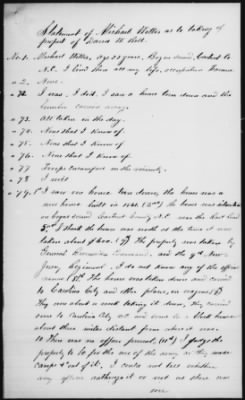 Statement of Michael Willis as to taking of
property of David W. Bell.
No. 1. Michael Willis, age 53 years, Bogue Sound, Carteret Co
N.C. I lived there all my life, occupation Farmer
" 2. None.
" 72. I was. I did. I saw a house torn down and the
lumber carried away.
" 73. All taken in the day.
" 74. None that I know of.
" 75. None that I know of.
" 76. None that I know of.
" 77. Troops encamped in the vicinity.
" 78.
" 79. 1st I saw one house torn down, the house was a
new house built in 1861. (2nd) the house was situated
on bogue sound Carteret County N.C.
I think the house was worth at the time it was
taken about $600. The property was taken by
General command, and the 9th New
Jersey Regiment. I do not know any of the officers
names. The house was taken down and carried
to Carolina City and other places, in wagons.
They were about a week taking it down, they carried
some to Carolina City
about three miles distant from where it was.
10 There was no officer present. I judge the
property to be for the use of the army as they made
camps out of it, I could not tell whether
any officer authorized it or not as there was
none